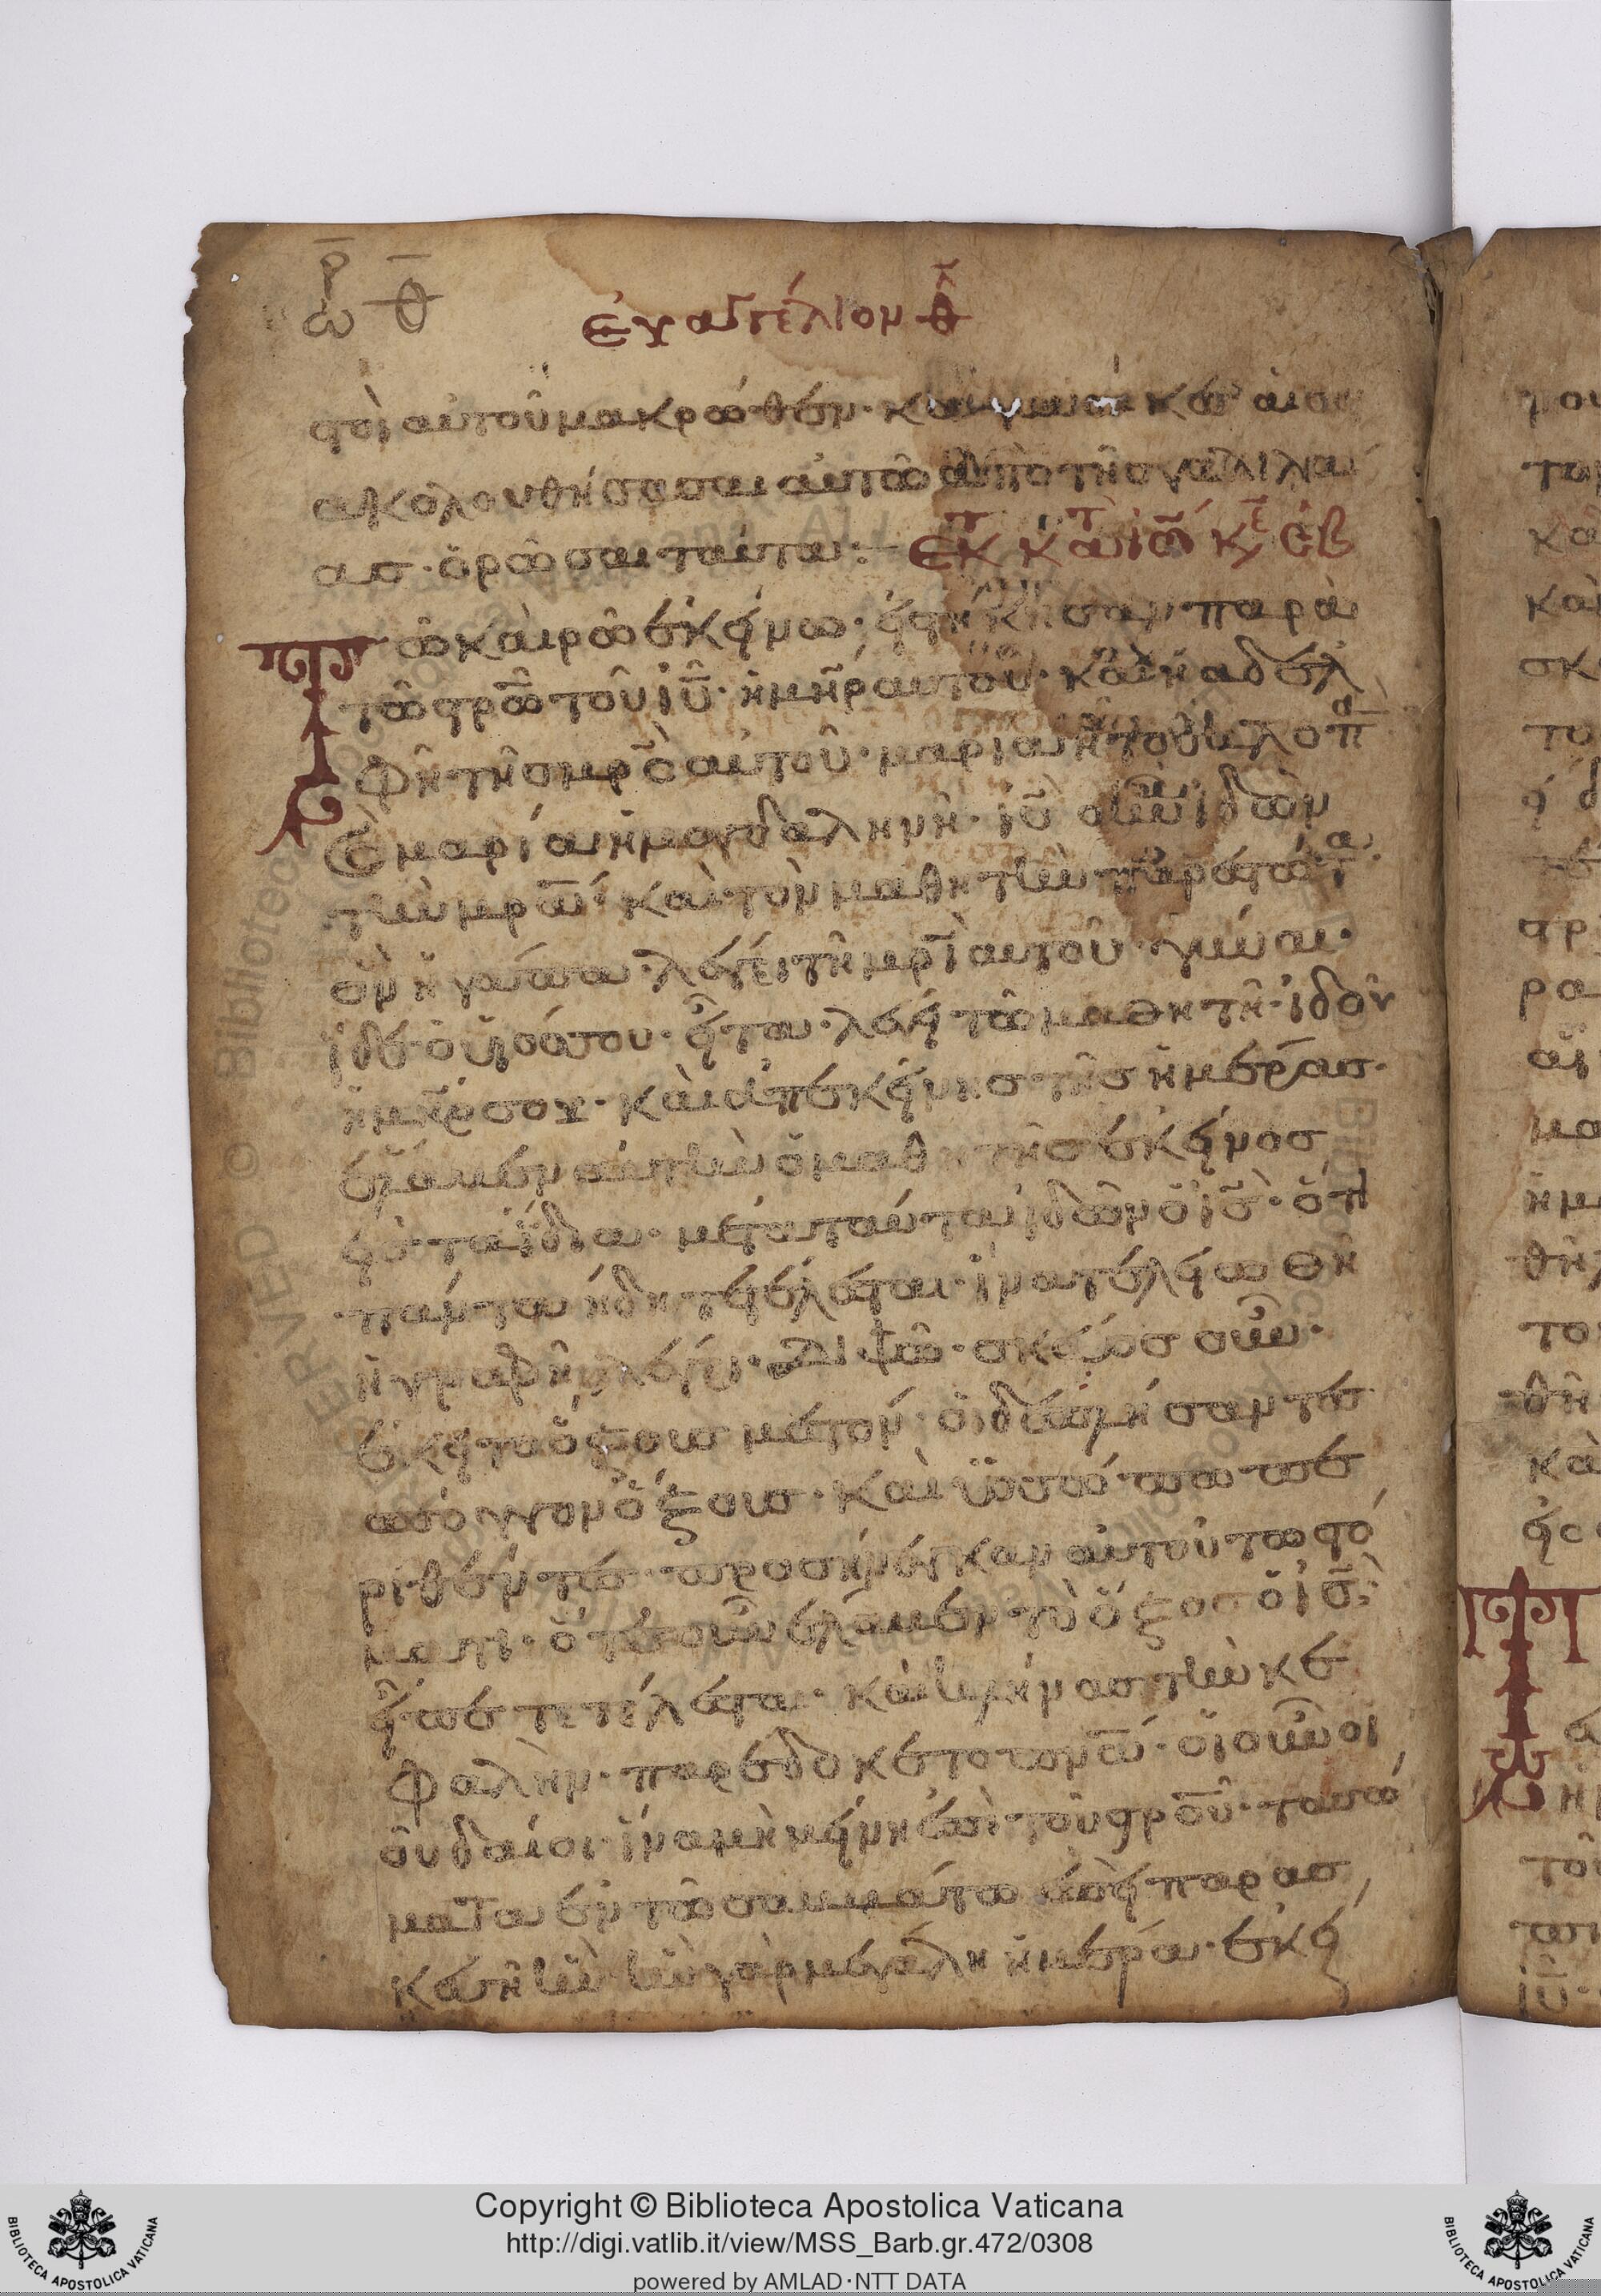 ω̅ρ θ̅
εὐαγγέλιον θ
στοὶ αὐτοῦ μακρώθεν· καὶ γυναίκες αἱ συ
ακολουθήσασαι αὐτῶ ἀπὸ τῆς γαλιλαί
ασ· ὁρῶσαι ταύτα:— ἐκ κατ ιω κε
Τῶ καιρῶ ἐκείνω· εἱστήκησαν παρὰ
τῶ στρω̅ τοῦ ιυ̅· ἡ μηρ αυτοῦ· καὶ ἡ αδελ
φὴ τῆς μρς αὐτοῦ· μαρια ἡ τοῦ κλοπα
καὶ μαρία ἡ μαγδαληνὴ· ις οὖν ἰδὼν
τὴν μρα καὶ τὸν μαθητὴν παρεστώτα
ὃν ἠγάπα· λέγει τῆ μρι αυτοῦ· γύναι·
ἰδε ὁ υἱόσ σου· εἶτα· λέγει τῶ μαθητῆ· ἰδοῦ
ἡ μηρ σου· καὶ ἀπ εκείνησ τῆσ ἡμέρασ·
ἔλαβεν αὐτὴν ὁ μαθητὴσ ἐκείνοσ
εἰσ τα ἴδια· μετα ταύτα ἰδῶν ὁ ισ· ὅτι
πάντα ήδη τετέλεσται· ἵνα τελειωθῆ
ἡ γραφὴ λέγει· διψῶ· σκεύοσ οὖν·
ἔκειτο ὄξουσ μεστόν· οἱ δὲ πλήσαντεσ
σπόγγον ὄξουσ· καὶ ὑσσώπω πε
ριθέντεσ προσήνεγκαν αὐτοῦ τω στό
ματι· ὅτε οὖν έλαβεν τὸ ὄξοσ ὁ ισ·
εἶπε τετέλεσται· καὶ κλήνασ τὴν κε
φαλὴν· παρέδοκε το πνα· οἱ οὖν οι
οὐδαίοι· ἵνα μὴ μείνη ἐπὶ τοῦ στρου· τα σώ
ματα ἐν τῶ σαββάτω ἐπεὶ παρασ
κευὴ ἦν ἦν γὰρ μεγάλη ἡ ἡμέρα· ἐκεί
Copyright © Biblioteca Apostolica Vaticana
http://digi.vatlib.it/view/MSS_Barb.gr.472/0308
powered by AMLAD·NTT DATA
BIBLIOTECA APOSTOLICA VATICANA
BIBLIOTECA APOSTOLICA VATICANA